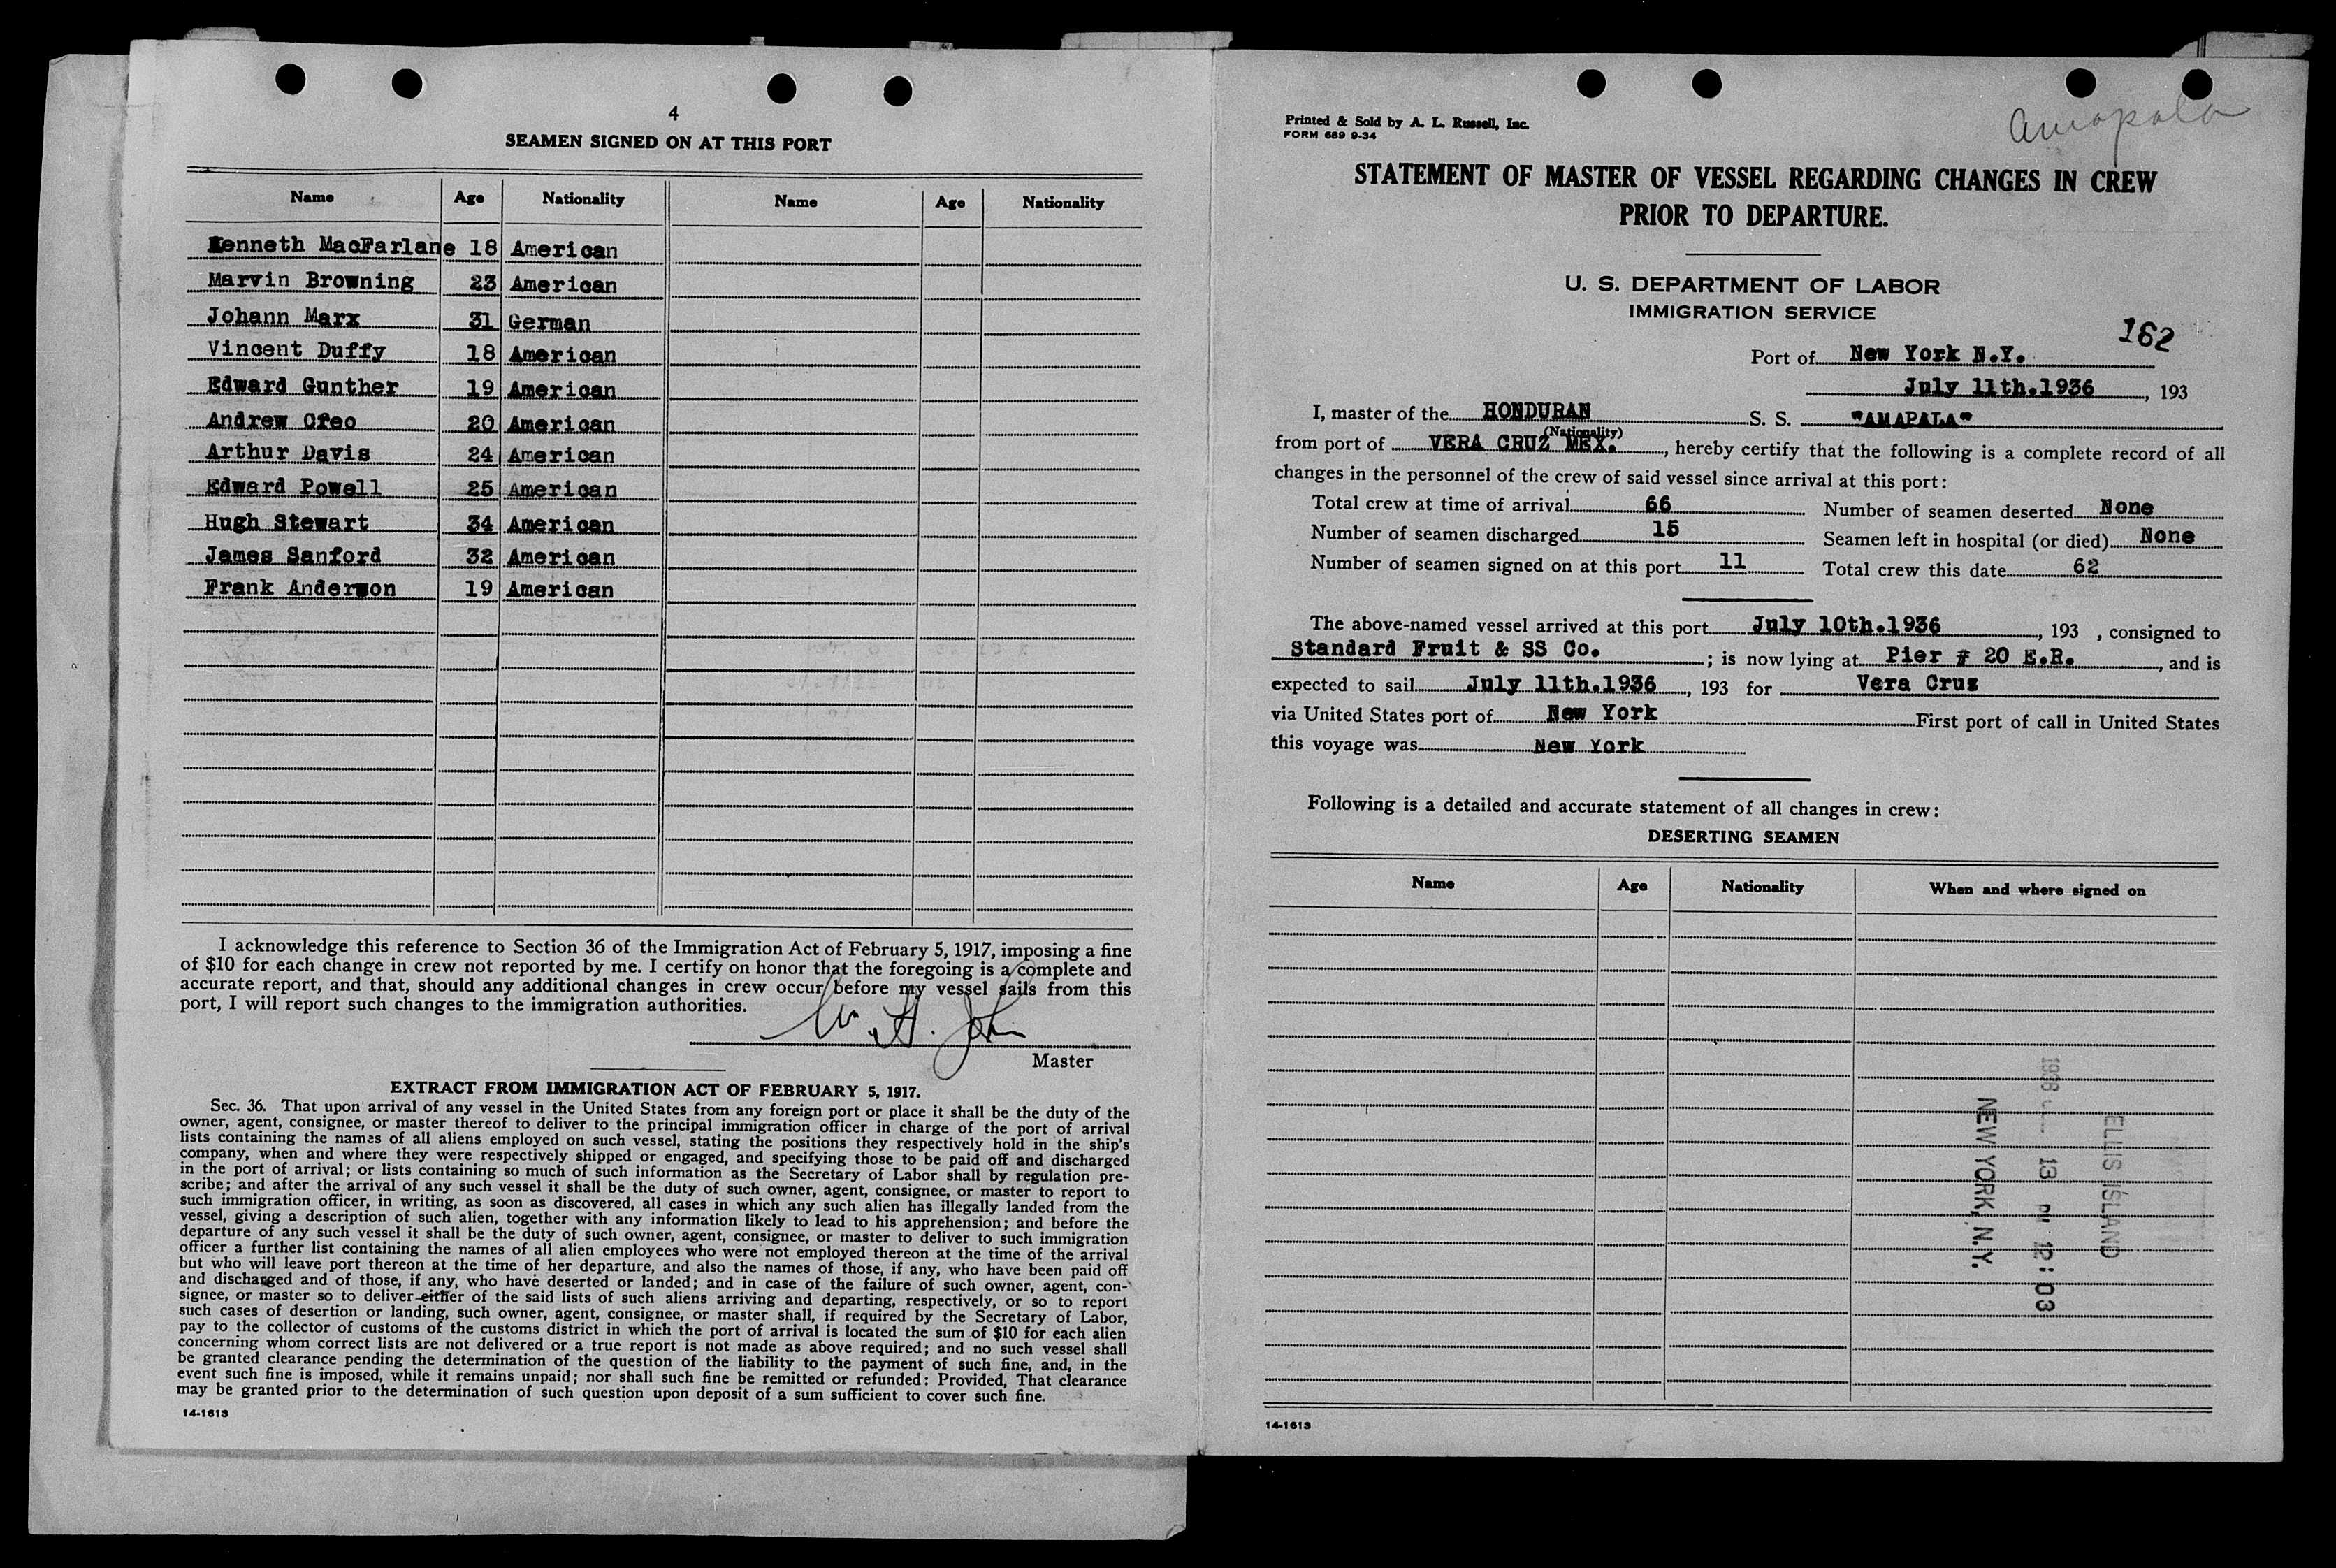 4
SEAMEN SIGNED ON AT THIS PORT
Name Age Nationality Name Age Nationality
Kenneth MacFarlane 18 American
Marvin Browning 23 American
Johann Marx 31 German
Vincent Duffy 18 American
Edward Gunther 19 American
Andrew 20 American
Arthur Davis 24 American
Edward Powell 25 American
Hugh Stewart 34 American
James Sanford 32 American
Frank Anderson 19 American
I acknowledge this reference to Section 36 of the Immigration Act of February 5, 1917, imposing a fine
of $10 for each change in crew not reported by me. I certify on honor that the foregoing is a complete and
accurate report, and that, should any additional changes in crew occur before my vessel sails from this
port, I will report such changes to the immigration authorities.
Master
EXTRACT FROM IMMIGRATION ACT OF FEBRUARY 5, 1917.
Sec. 36. That upon arrival of any vessel in the United States from any foreign port or place it shall be the duty of the
owner, agent, consignee, or master thereof to deliver to the principal immigration officer in charge of the port of arrival
lists containing the names of all aliens employed on such vessel, stating the positions they respectively hold in the ship's
company, when and where they were respectively shipped or engaged, and specifying those to be paid off and discharged
in the port of arrival; or lists containing so much of such information as the Secretary of Labor shall by regulation pre-
scribe; and after the arrival of any such vessel it shall be the duty of such owner, agent, consignee, or master to report to
such immigration officer, in writing, as soon as discovered, all cases in which any such alien has illegally landed from the
vessel, giving a description of such alien, together with any information likely to lead to his apprehension; and before the
departure of any such vessel it shall be the duty of such owner, agent, consignee, or master to deliver to such immigration
officer a further list containing the names of all alien employees who were not employed thereon at the time of the arrival
but who will leave port thereon at the time of her departure, and also the names of those, if any, who have been paid off
and discharged and of those, if any, who have deserted or landed; and in case of the failure of such owner, agent, con-
signee, or master so to deliver either of the said lists of such aliens arriving and departing, respectively, or so to report
such cases of desertion or landing, such owner, agent, consignee, or master shall, if required by the Secretary of Labor,
pay to the collector of customs of the customs district in which the port of arrival is located the sum of $10 for each alien
concerning whom correct lists are not delivered or a true report is not made as above required; and no such vessel shall
be granted clearance pending the determination of the question of the liability to the payment of such fine, and, in the
event such fine is imposed, while it remains unpaid; nor shall such fine be remitted or refunded: Provided, That clearance
may be granted prior to the determination of such question upon deposit of a sum sufficient to cover such fine.
14-1613
Printed & Sold by A. L. Russell, Inc.
FORM 689 9-34
Amapala
STATEMENT OF MASTER OF VESSEL REGARDING CHANGES IN CREW
PRIOR TO DEPARTURE.
U. S. DEPARTMENT OF LABOR
IMMIGRATION SERVICE
162
Port of New York N.Y.
July 11th.1936, 193
I, master of the HONDURAN S. S. "AMAPALA"
(Nationality)
from port of VERA CRUZ MEX., hereby certify that the following is a complete record of all
changes in the personnel of the crew of said vessel since arrival at this port:
Total crew at time of arrival 66 Number of seamen deserted None
Number of seamen discharged 15 Seamen left in hospital (or died) None
Number of seamen signed on at this port 11 Total crew this date 62
The above-named vessel arrived at this port July 10th.1936, 193 , consigned to
Standard Fruit & SS Co. ; is now lying at Pier # 20 E.R., and is
expected to sail July 11th.1936, 193 for Vera Cruz
via United States port of New York First port of call in United States
this voyage was New York
Following is a detailed and accurate statement of all changes in crew:
DESERTING SEAMEN
Name Age Nationality When and where signed on
ELLIS ISLAND
1936 13 PM 12:03
NEW YORK, N.Y.
14-1613